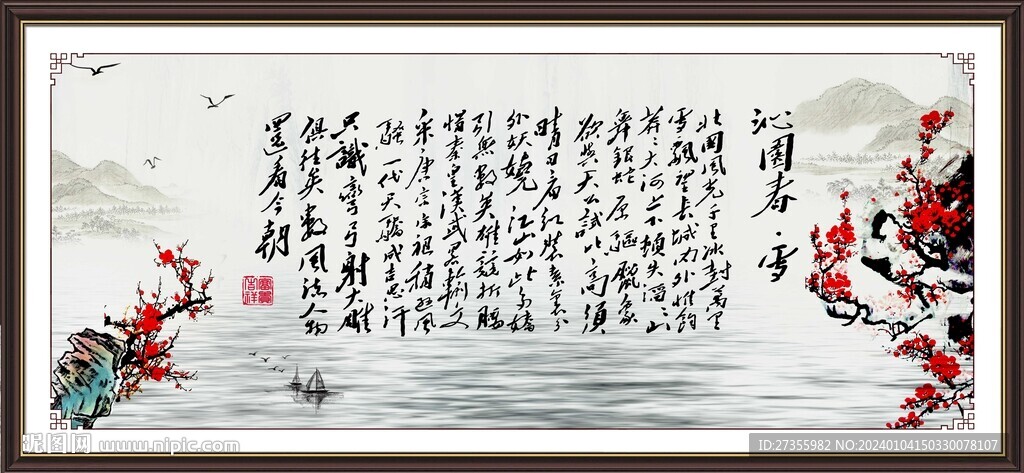 沁園春·雪
北國風光千里冰封萬里
雪飄望長城内外惟餘
莽莽大河上下頓失滔滔山
舞銀蛇原驅臘象
欲與天公試比高須
晴日看紅裝素裹分
外妖嬈江山如此多嬌
引無數英雄競折腰
惜秦皇漢武略輸文
采唐宗宋祖稍遜風
騷一代天驕成吉思汗
只識彎弓射大雕
俱往矣數風流人物
還看今朝
富貴吉祥
昵图网 www.nipic.com
ID:27355982 NO:20240104150330078107